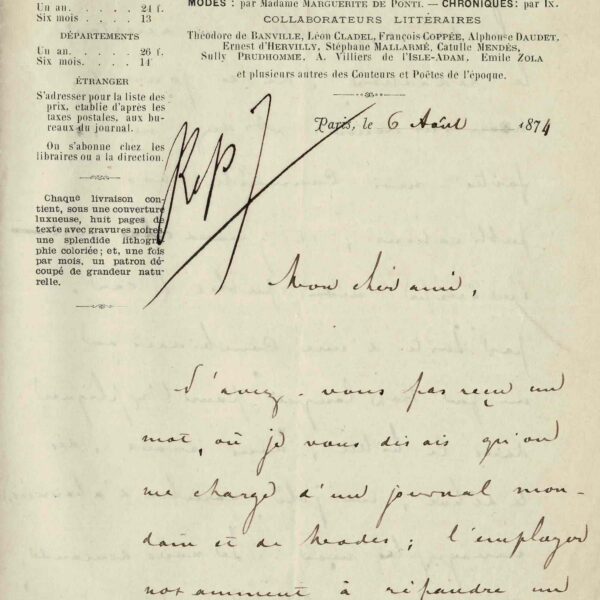 Un an. . . . . 24 f.
Six mois . . . . 13
DÉPARTEMENTS
Un an. . . . . 26 f.
Six mois. . . . 14
ÉTRANGER
S'adresser pour la liste des
prix, établie d'après les
taxes postales, aux bu-
reaux du journal.
On s'abonne chez les
libraires ou a la direction.
Chaque livraison con-
tient, sous une couverture
luxueuse, huit pages de
texte avec gravures noires,
une splendide lithogra-
phie coloriée; et, une fois
par mois, un patron dé-
coupé de grandeur natu-
relle.
MODES : par Madame MARGUERITE DE PONTI. — CHRONIQUES: par IX.
COLLABORATEURS LITTÉRAIRES
Théodore de BANVILLE, Léon CLADEL, François COPPÉE, Alphonse DAUDET,
Ernest d'HERVILLY, Stéphane MALLARMÉ, Catulle MENDÈS,
Sully PRUDHOMME, A. VILLIERS DE L'ISLE-ADAM, Emile ZOLA
et plusieurs autres des Conteurs et Poëtes de l'époque.
Paris, le 6 Août 1874
Rep
Mon cher ami,
N'avez-vous pas reçu un
mot, où je vous disais qu'on
me charge d'un journal mon-
dain et de Modes; l'employer
notamment à répandre un